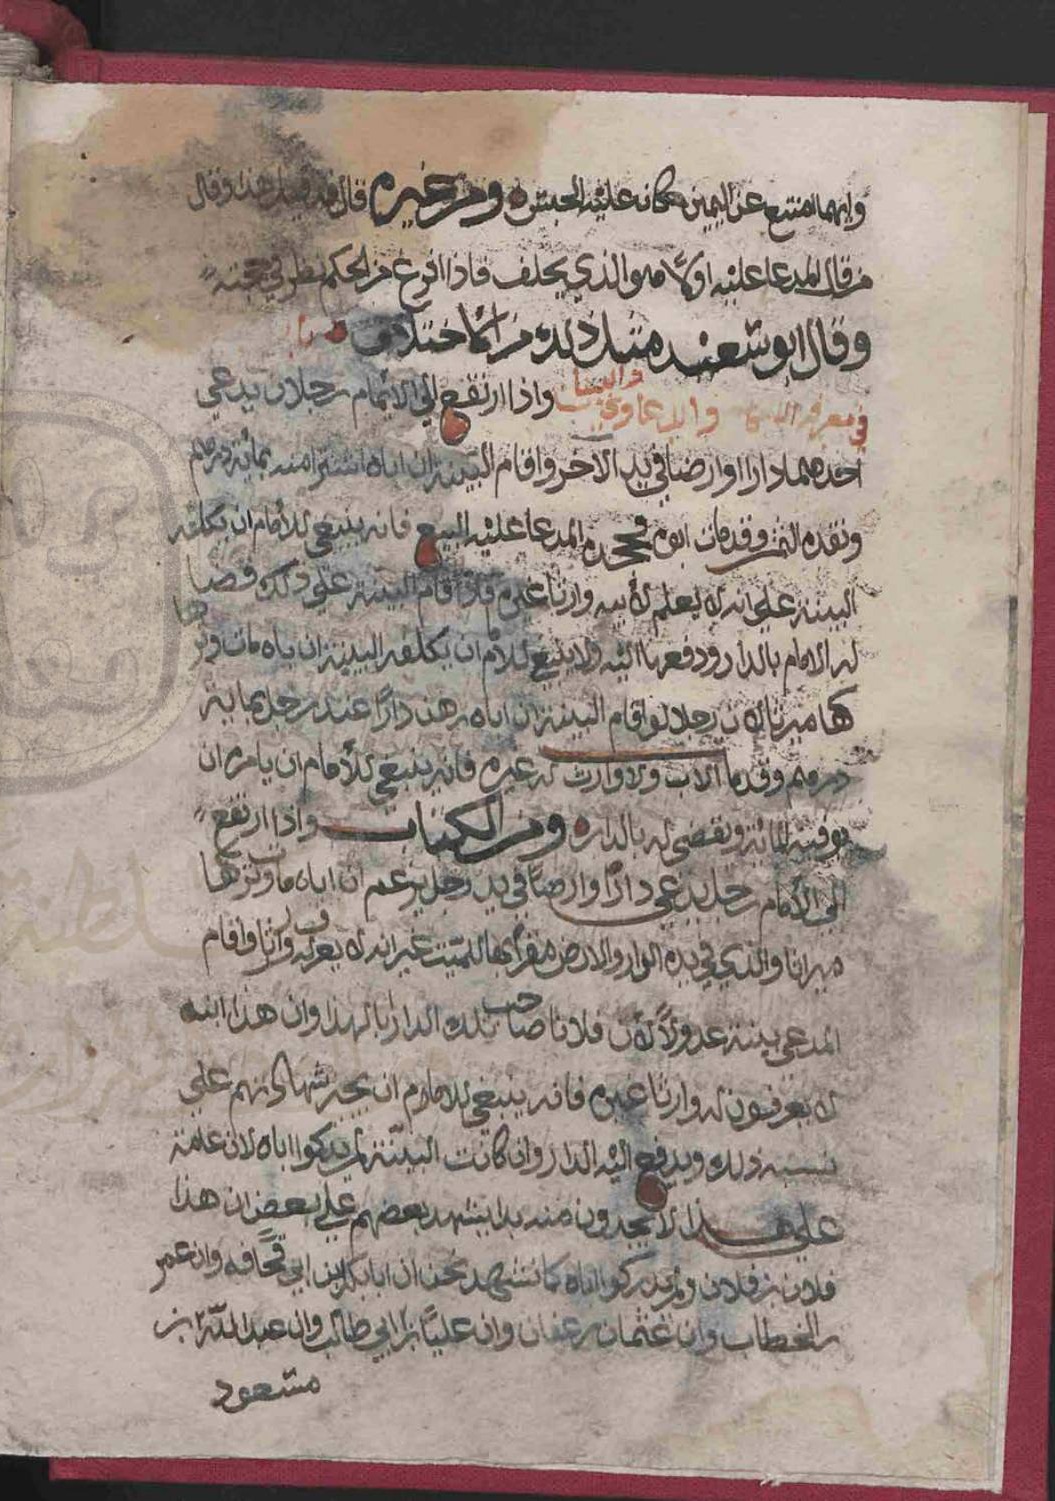 وايهما امتنع عن اليمين كان عليه الحبس ومن غيره قال قد قيل هذا وقال
من قال المدعا عليه اولا هو الذي يحلف فاذا افرغ من الحكم نظر في حجته
وقال ابو سعيد مثل ذلك من الاختلاف
في معرفة والدعاوي والبينات واذا ارتفع الى الامام رجلان يدعي
احدهما دارا او ارضا في يد الاخر واقام البينة ان اباه اشترا منه بمائة درهم
ونقده الثمن وقد مات ابوه فجحده المدعا عليه البيع فانه ينبغي للامام ان يكلفه
البينة على انه لا يعلم لابيه وارثا غيره فاذا اقام البينة على ذلك قضا
له الامام بالدار ودفعها اليه ولا ينبغي للامام ان يكلفه البينة ان اباه مات وتر
كها ميراثا لان رجلا لو اقام البينة ان اباه رهن دارا عند رجل بماية
درهم وقد مات الاب ولا وارث له غيره فانه ينبغي للامام ان يامره ان
يوفيه المائة ويقضي له بالداره ومن الكتاب واذا ارتفع
الى الامام رجل يدعي دارا وارضا في يد رجل يزعم ان اباه مات وتركها
ميراثا والذي في يده الدار والارض مقرا بها للميت غير انه لا يعرف له وارثا واقام
المدعي بينة عدولا لان فلانا صاحب تلك الدار بالهذا وان هذا ابنه
لا يعرفون له وارثا غيره فانه ينبغي للامام ان يجيز شهادتهم على
نسبه ذلك ويدفع اليه الدار وان كانت البينة لم يدركوا اباه لان عامة
على هذا لا يجدون منه بدا يشهد بعضهم على بعض ان هذا
فلان بن فلان ولم يدركوا اباه كما نشهد نحن ان ابا بكر ابن ابي قحافه وان عمر
بن الخطاب وان عثمان بن عفان وان عليا بن ابي طالب وان عبد الله بن
مسعود